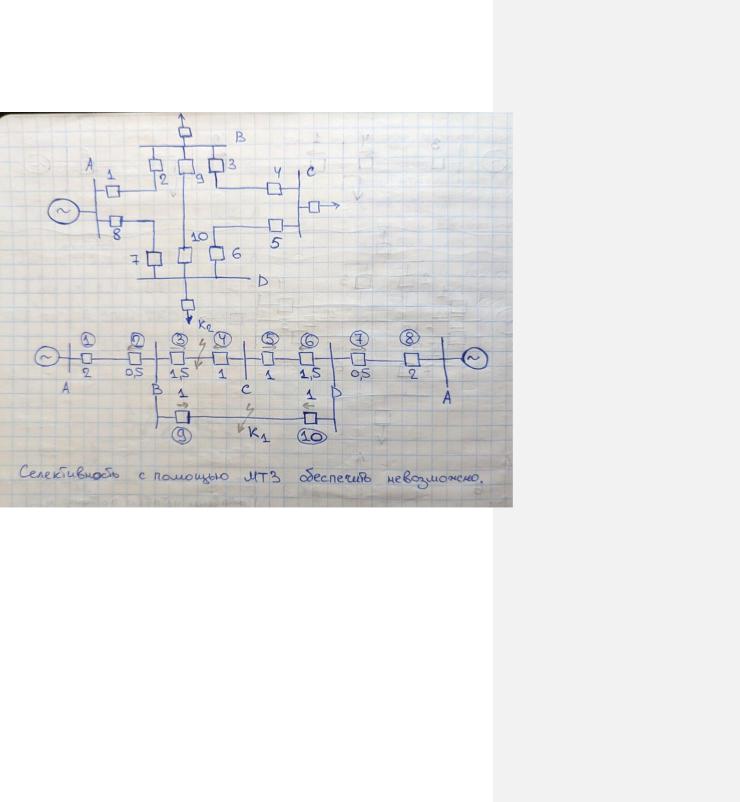 B
A
1
2
9
3
4
C
~
8
10
5
7
6
D
K2
1 2 3 4 5 6 7 8
~ ~
2 0,5 1,5 1 1 1,5 0,5 2
A B C D A
1 1
K1
9 10
Селективность с помощью МТЗ обеспечить невозможно.